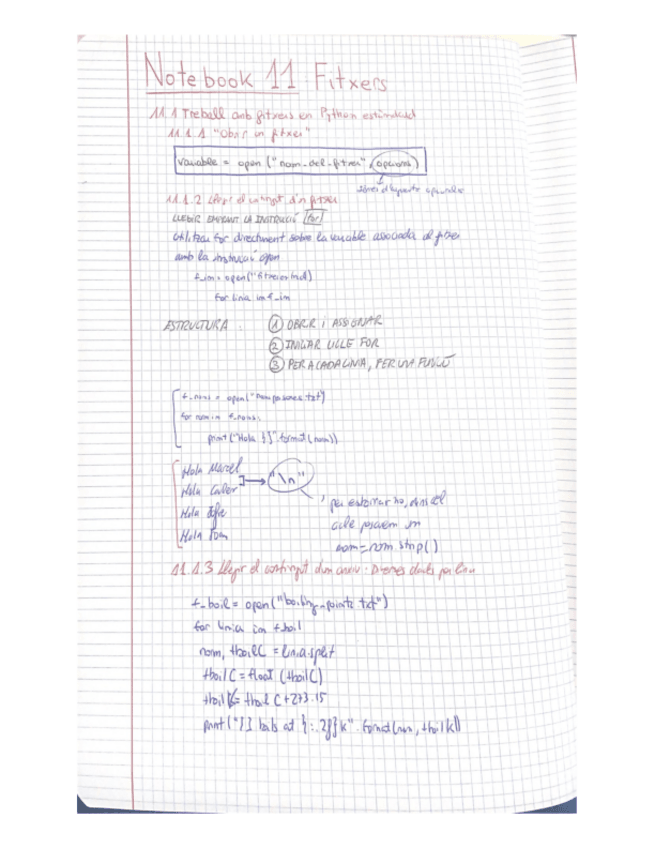 Notebook 11: Fitxers
11.1 Treball amb fitxers en Python estàndard
11.1.1 "Obrir un fitxer"
variable = open ("nom_del_fitxer", opcions)
11.1.2 Llegir el contingut d'un fitxer
LLEGIR EMPRANT LA INSTRUCCIÓ for
utilitzar for directament sobre la variable associada al fitxer
amb la instrucció open
f_im = open("
for linia in f_im
ESTRUCTURA:
① OBRIR i ASSIGNAR
② INICIAR CICLE FOR
③ PER A CADA LINIA, FER UNA FUNCIÓ
f_noms = open("nompersones.txt")
for nom in f_noms:
print("Hola {}".format(nom))
Hola Marcel
Hola
Hola
Hola Tom
"\n"
per esborrar-ho, dins el
cicle posarem un
nom=nom.strip()
11.1.3 Llegir el contingut d'un arxiu: Diverses dades per línia
f_boil = open("boiling_points.txt")
for linia in f_boil
nom, tboilC = linia.split
tboilC = float (tboilC)
tboilK = tboilC + 273.15
print("{} boils at {:.2f}K".format(nom, tboilK))